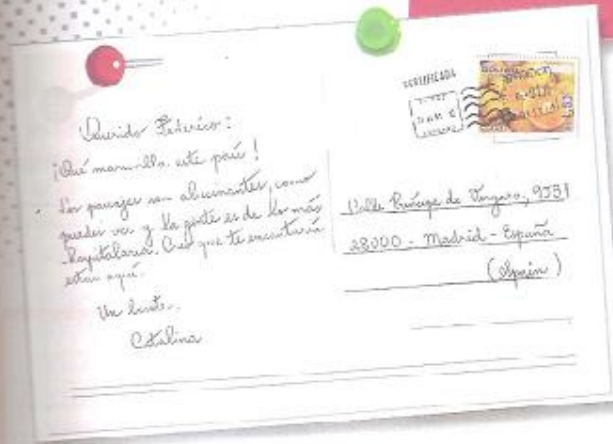 Querido Federico:
¡Qué maravilla este país!
Los paisajes son alucinantes, como
puedes ver y la gente es de lo más
hospitalaria. Creo que te encantaría
estar aquí.
Un
Catalina
CERTIFICADA
Calle Príncipe de Vergara, 9551
28000 - Madrid - España
(Spain)